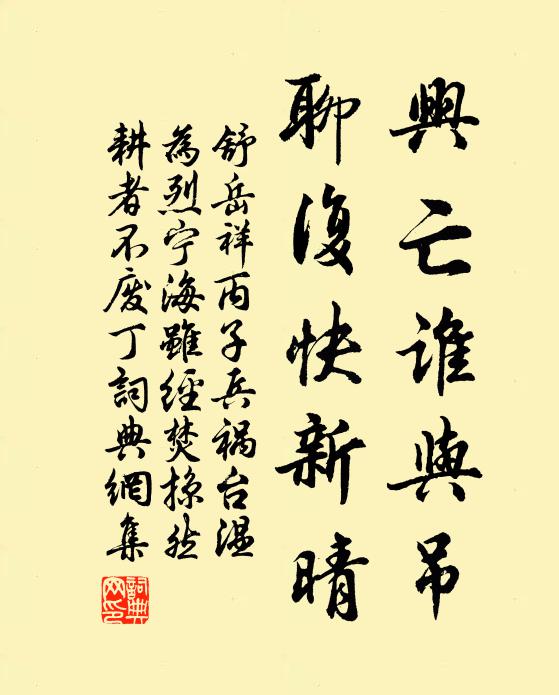 興亡誰與吊
聊復快新晴
舒岳祥丙子兵禍台温
為烈宁海雖經焚掠然
耕者不废丁詞典網集
詞典網印